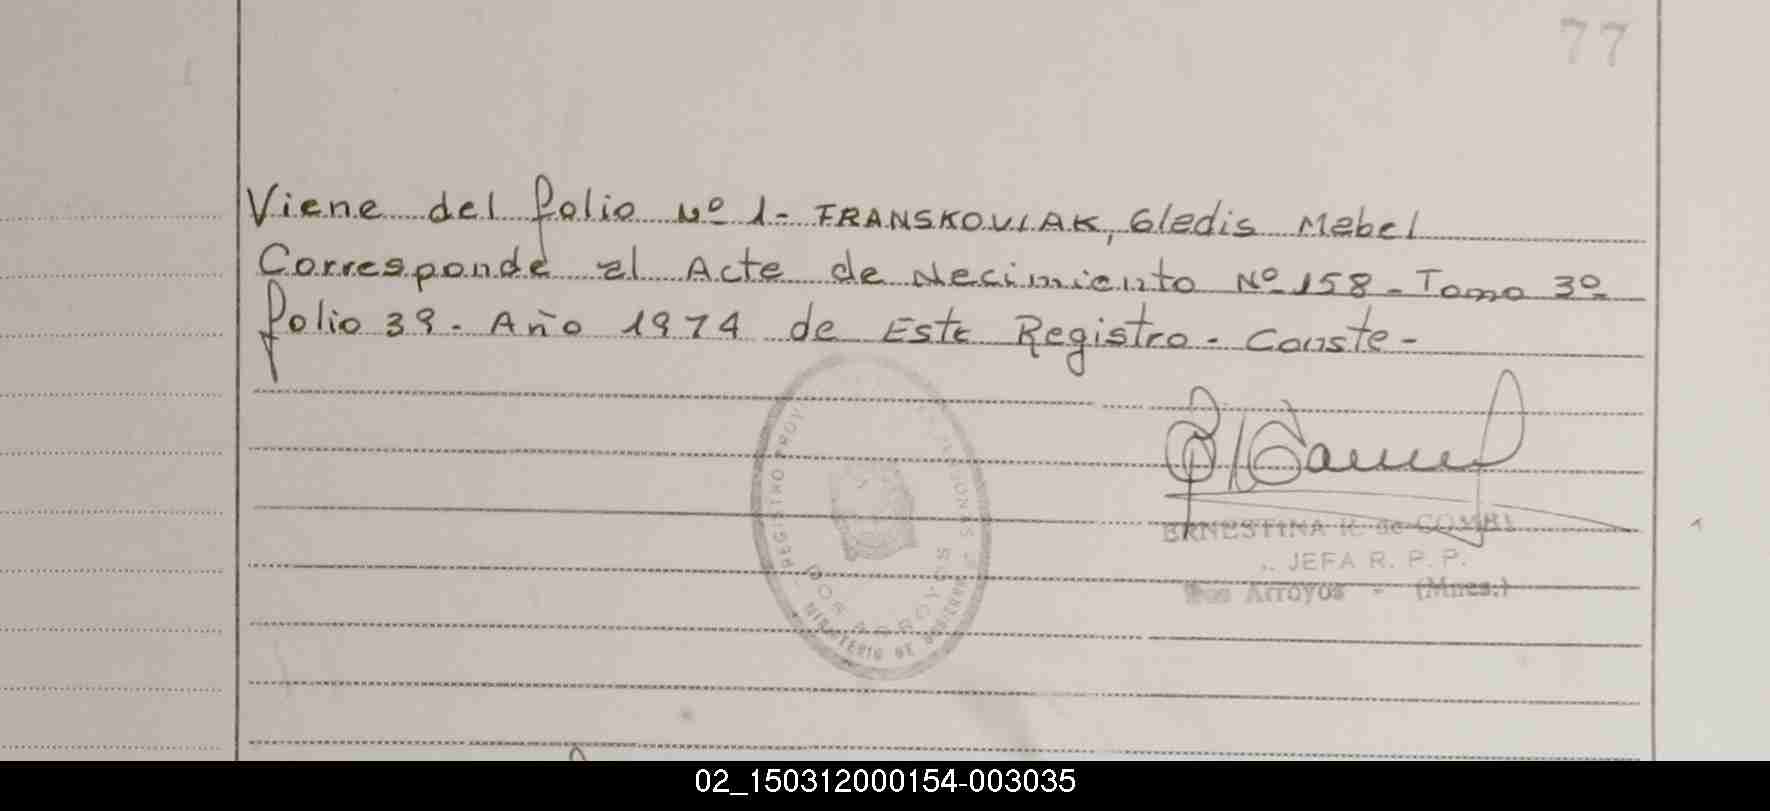 77
Viene del folio Nº 1- FRANSKOVIAK, Gledis Mabel
Corresponde al Acta de Nacimiento Nº 158- Tomo 3º
folio 39- Año 1974 de Este Registro- Conste-
REGISTRO PROV. PERSONAS
DOS ARROYOS
MINISTERIO DE GOBIERNO
ERNESTINA R. de
JEFA R. P. P.
Dos Arroyos - (Mnes.)
02_150312000154-003035